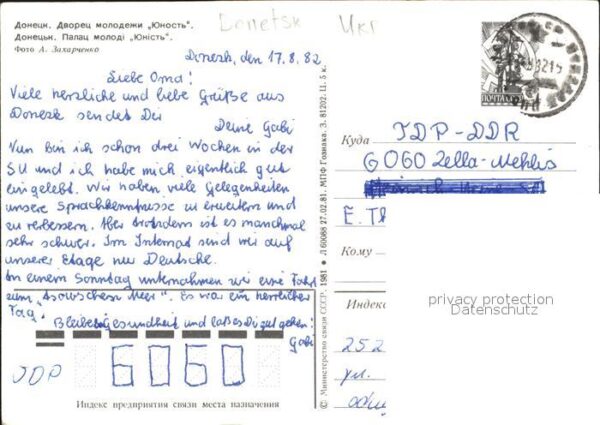 Донецк. Дворец молодежи „Юность“.
Донецьк. Палац молоді „Юність“.
Фото А. Захарченко
Donetsk Ukr
Donezk, den 17.8.82
Liebe Oma!
Viele herzliche und liebe Grüße aus
Donezk sendet Dir
Deine Gabi
Nun bin ich schon drei Wochen in der
SU und ich habe mich eigentlich gut
eingelebt. Wir haben viele Gelegenheiten
unsere Sprachkenntnisse zu erweitern und
zu verbessern. Aber trotzdem ist es manchmal
sehr schwer. Im Internat sind wir auf
unserer Etage nur Deutsche.
An einem Sonntag unternahmen wir eine Fahrt
zum „Asowschen Meer“. Es war ein herrlicher
Tag.
Bleibe gesund und laß es Dir gut gehen!
Gabi
ГДР
6060
Индекс предприятия связи места назначения
© Министерство связи СССР. 1981 ★ Л 60088 27.02.81. МПФ Гознака. З. 81202. Ц. 5 к.
ПОЧТА
Куда ГДР-DDR
6060 Zella-Mehlis
E. Th
Кому
Индекс
privacy protection
Datenschutz
252
ул.